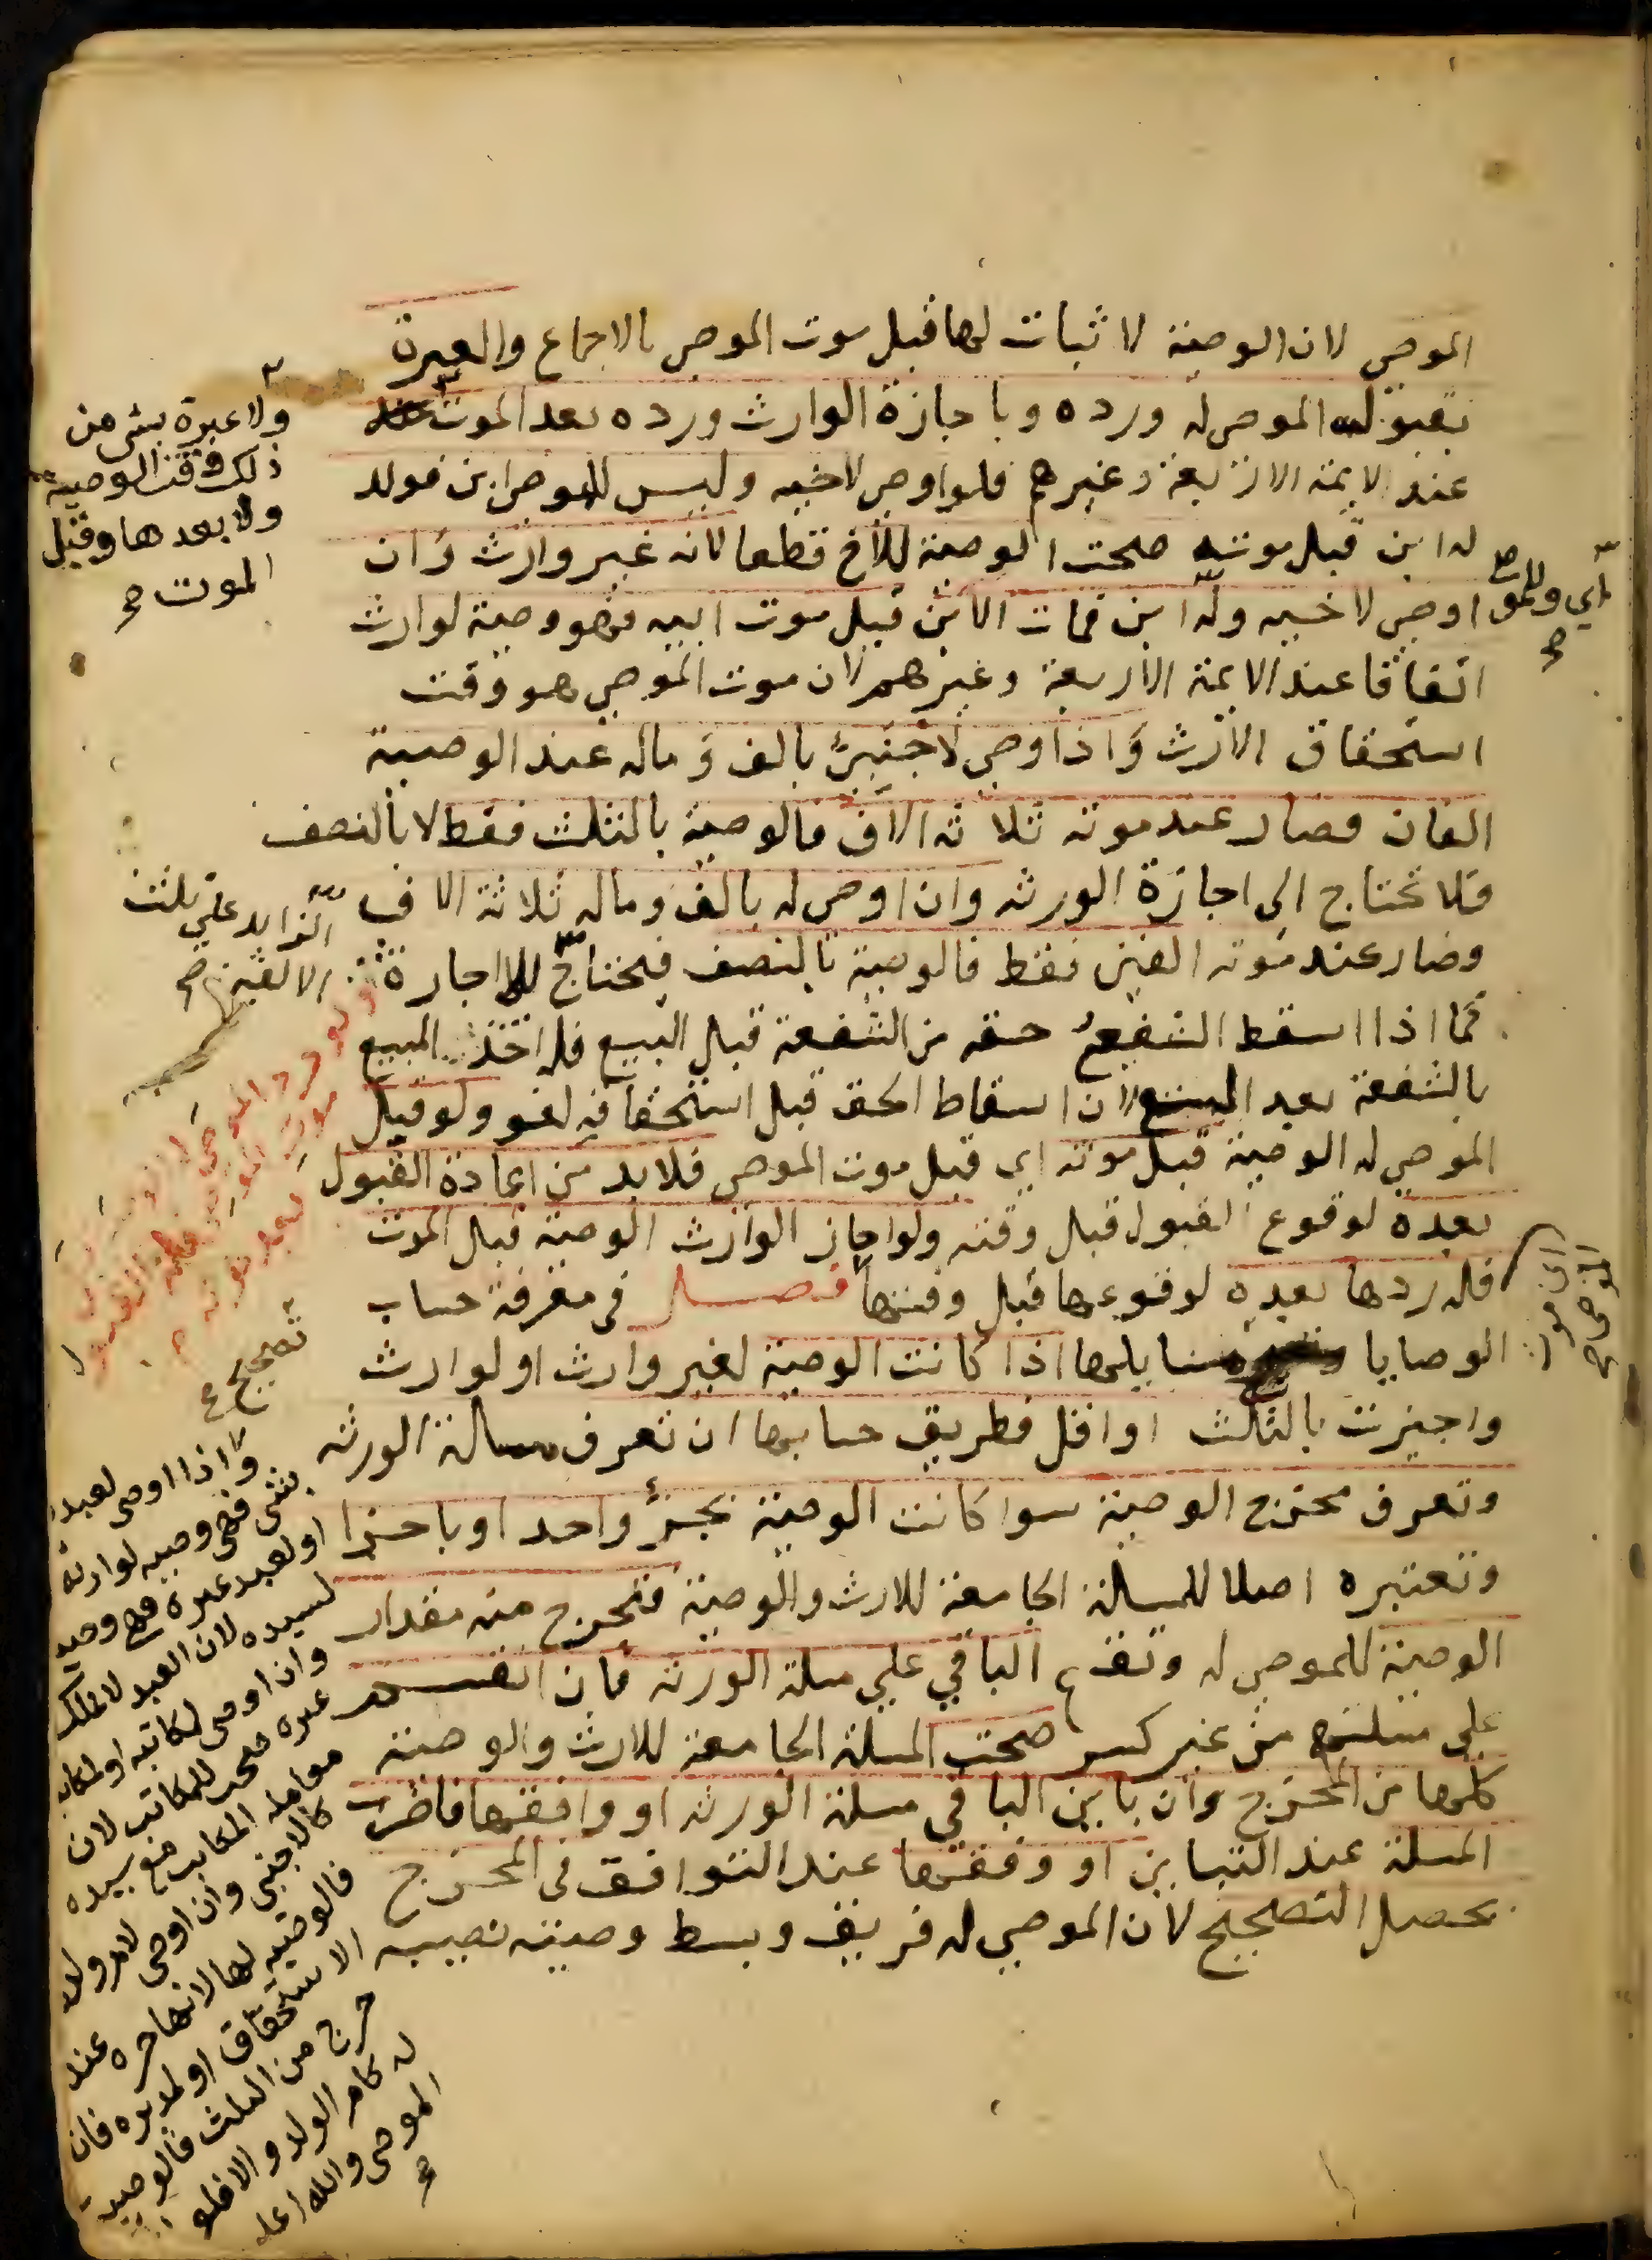 الموصي لان الوصية لا ثبات لها قبل موت الموصي بالاجماع والعبرة
بقبول الموصى له ورده وباجازة الوارث ورده بعد الموت
عند الايمة الاربعة وغيرهم فلو اوصى لاخيه وليس للموصي ابن فولد
له ابن قبل موته صحت الوصية للاخ قطعا لانه غير وارث وان
اوصى لاخيه وله ابن فمات الابن قبل موت ابيه فهو وصية لوارث
اتفاقا عند الايمة الاربعة وغيرهم لان موت الموصي هو وقت
استحقاق الارث واذا اوصى لاجنبي بالف وماله عند الوصية
الفان فصار عند موته ثلاثة الاف فالوصية بالثلث فقط لا بالنصف
فلا تحتاج الى اجازة الورثه وان اوصى له بالف وماله ثلاثة الاف
وصار عند موته الفين فقط فالوصية بالنصف فيحتاج للاجازة
كما اذا اسقط الشفيع حقه من الشفعة قبل البيع فله اخذ المبيع
بالشفعة بعد البيع لان اسقاط الحق قبل استحقاقه لغو ولو قبل
الموصى له الوصية قبل موته اي قبل موت الموصي فلا بد من اعادة القبول
بعده لوقوع القبول قبل وقته ولو اجاز الوارث الوصية قبل الموت
فله ردها بعده لوقوعها قبل وقتها فصل في معرفة حساب
الوصايا مسايلها اذا كانت الوصية لغير وارث او لوارث
واجيزت بالثلث او اقل فطريق حسابها ان تعرف مسالة الورثه
وتعرف مخرج الوصية سوا كانت الوصية بجزء واحد او باجزا
وتعتبره اصلا للمسالة الجامعة للارث والوصية فتخرج منه مقدار
الوصية للموصى له وتقسم الباقي على مسلة الورثه فان انقسم
على مسلتهم من غير كسر صحت المسلة الجامعة للارث والوصية
كلها من المخرج وان باين الباقي مسلة الورثه او وافقها فاضرب
المسلة عند التباين او وفقها عند التوافق في المخرج
يحصل التصحيح لان الموصى له فريق وبسط وصيته نصيبه
ولا عبرة بشي من
ذلك وقت الوصية
ولا بعدها وقبل
الموت صح
اي وللموصي
صح
الزايد على ثلث
الالفين صح
تصحيح
واذا اوصى لعبده
بشي فهي وصيه لوارثه
او لعبد غيره فهي وصية
لسيده لان العبد لا يملك
وان اوصى لمكاتبه او لمكاتب
غيره صحت للمكاتب لان
معاملة المكاتب مع سيده
كالاجنبي وان اوصى لام ولده
فالوصية لها لانها حره عند
الاستحقاق او لمدبره فان
خرج من الثلث فالوصية
له كام الولد والا فلو
الموصى والله اعلم
صح